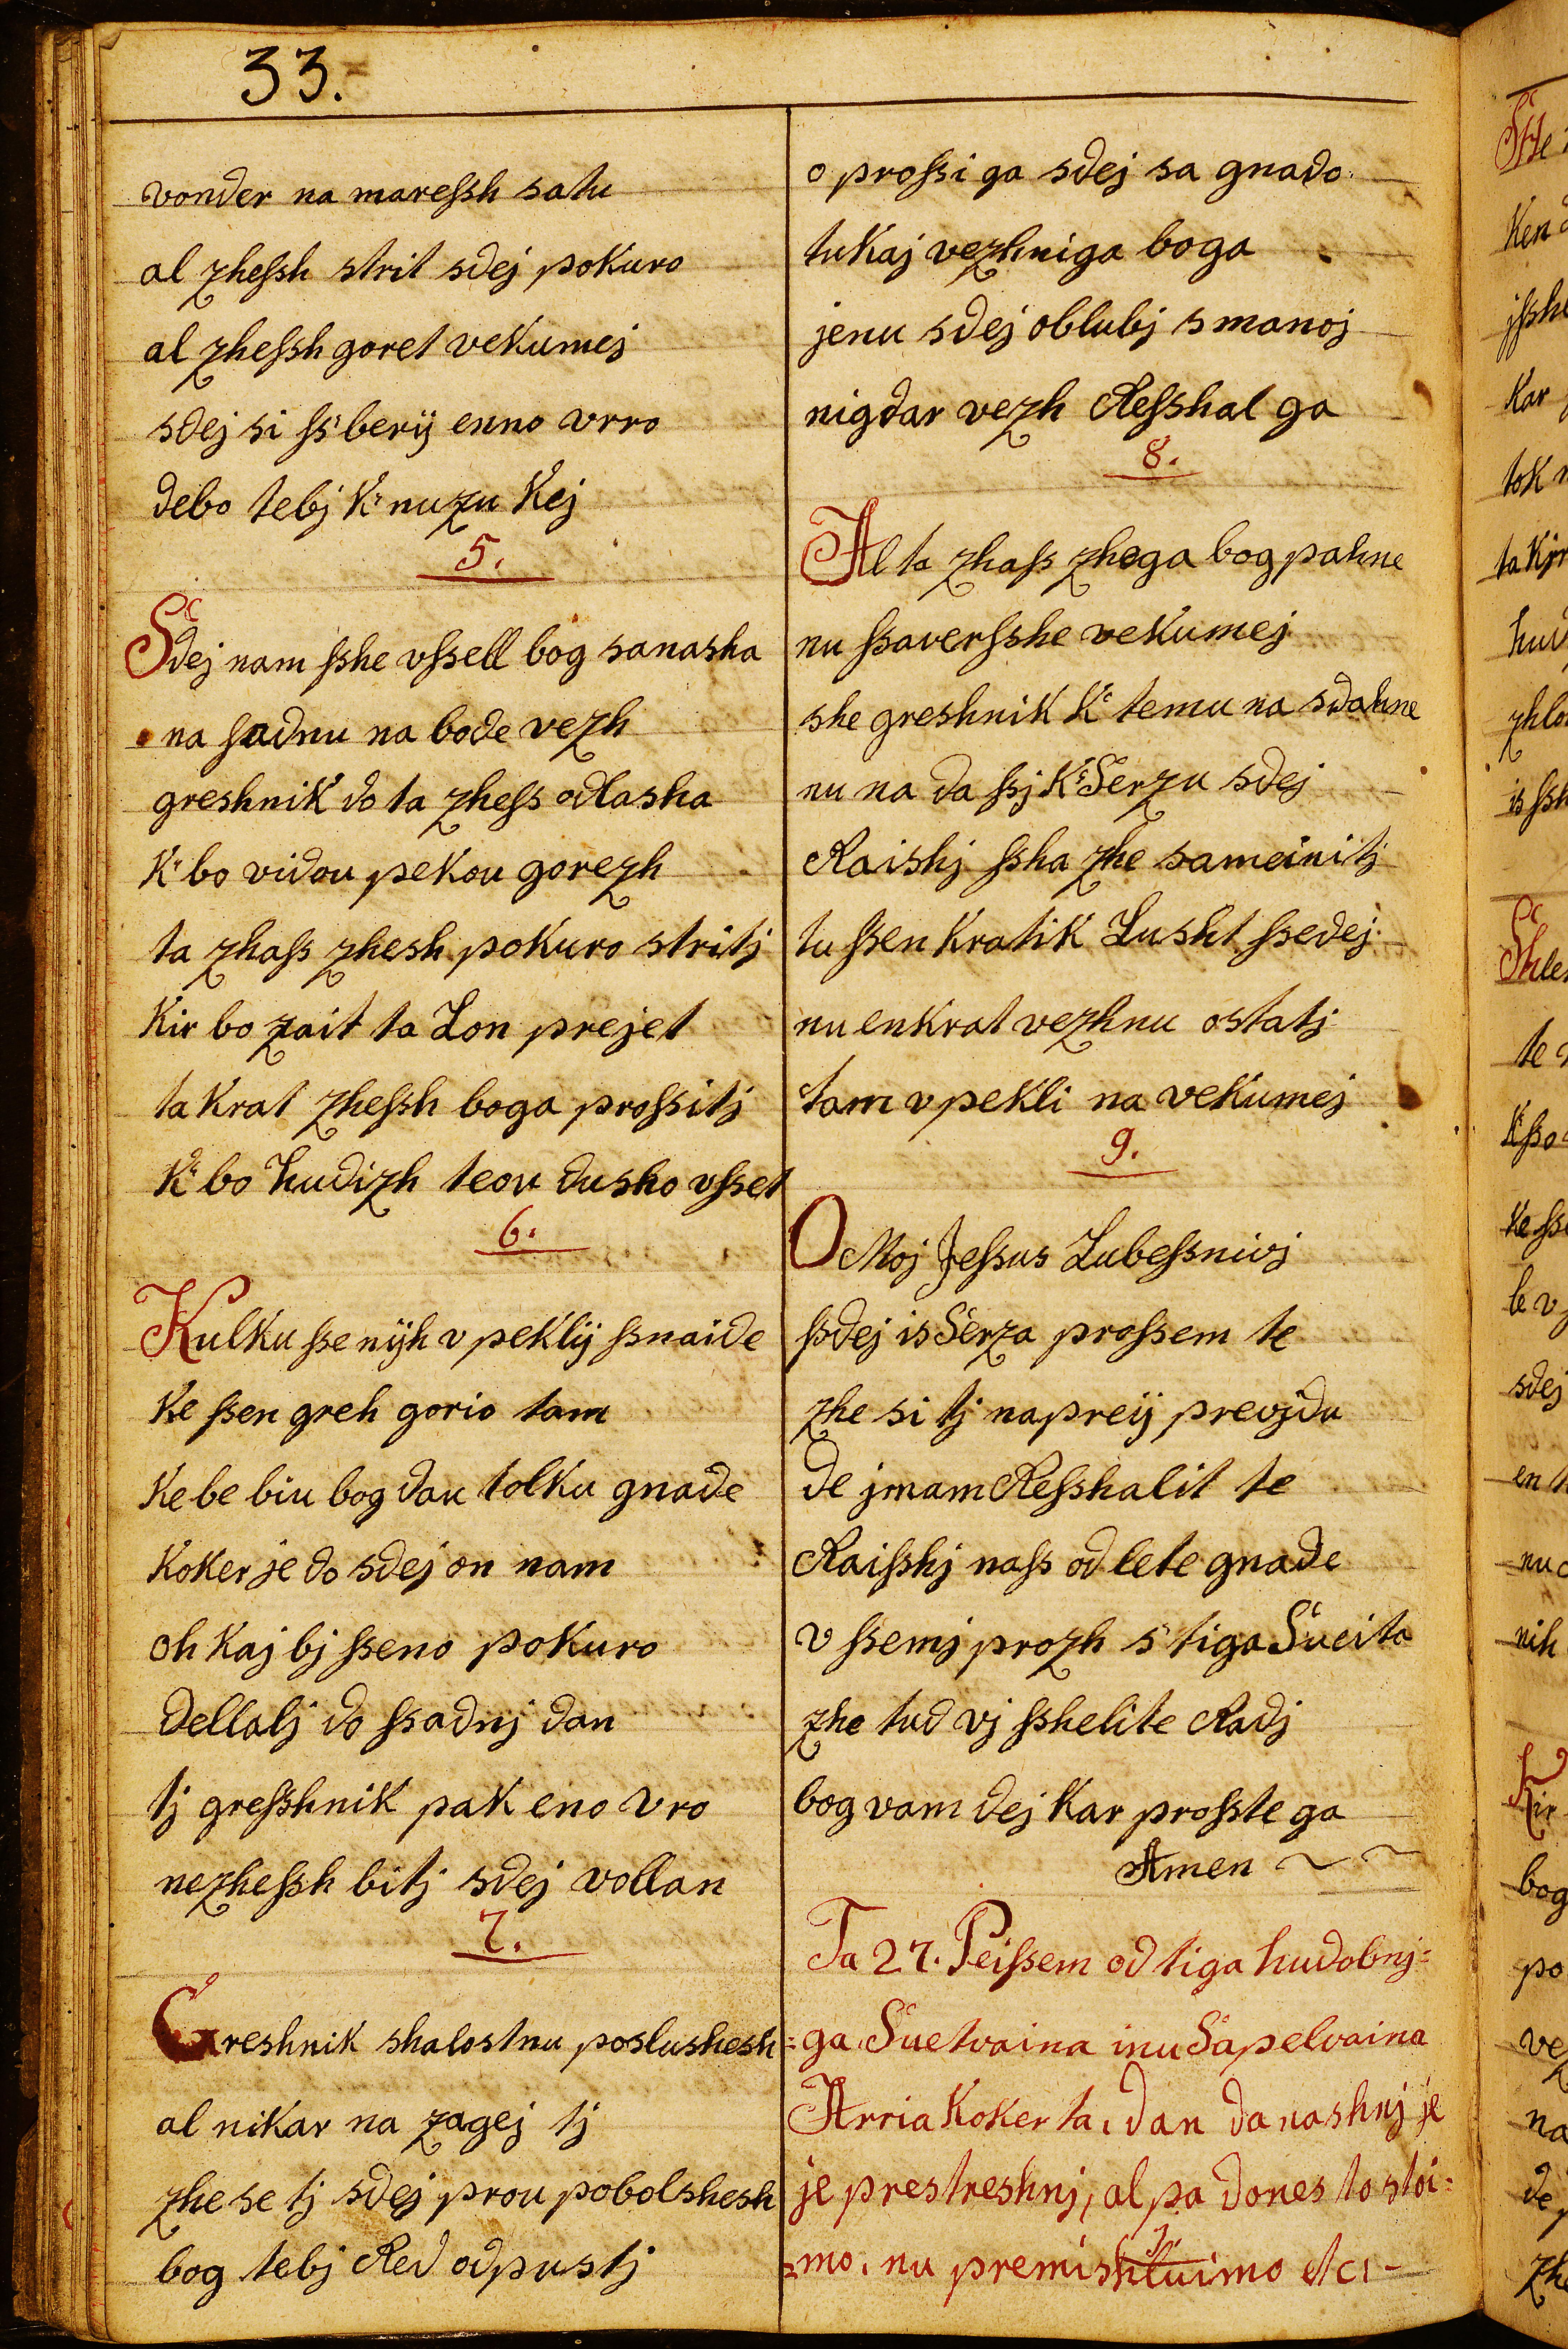 33.
vonder na mareſsh satu
al zheſsh strit sdej pokuro
al zheſsh goret vekumej
sdej si ſs berij enno vrro
debo tebj K nuzu Kej
5.
Sdej nam ſshe vſsell bog sanasha
na ſadnu na bode vezh
greshnik do ta zheſs odlasha
K bo vidou pekou gorezh
ta zhaſs zhesh pokuro stritj
Kir bo zait ta Lon prejet
ta Krat zheſsh boga proſsitj
K bo hudizh teou dusho vſset
6.
Kulku ſse nijh v peklij ſsnaide
Ke ſsen greh gorio tam
Ke be biu bog dau tolku gnade
Koker je do sdej on nam
oh Kaj bj ſseno pokuro
Dellalj do ſsadnj dan
tj greſshnik pak eno vro
nezheſsh bitj sdej vollan
7.
Greshnik shalostnu poslushesh
al nikar na zagej tj
zhe se tj sdej prou pobolshesh
bog tebj Red odpustj
o proſsi ga sdej sa gnado
tukaj vezhniga boga
jenu sdej oblubj s manoj
nigdar vezh Reſshal ga
8.
Al ta zhaſs zhoga bog pahne
nu ſsaverſshe vekumej
she greshnik K temu na sdahne
nu na da ſsj K Serzu sdej
Raishj ſsha zhe sameinitj
tu ſsen Kratik Lusht ſsedej
nu enkrat vezhnu ostatj
tam v pekli na vekumej
9.
O Moj Jeſsus Lubeſsnivj
ſsdej is Serza proſsem te
zhe si tj naprej previdu
de jmam Reſshalit te
Raiſshj naſs od lete gnade
v ſsemj prozh s tiga Sueita
zhe tud vj ſshelite Radj
bog vam dej Kar proſste ga
Amen
Ta 27. Peiſsem od tiga hudobnj=
=ga Suetvaina inu Sapelvaina
Arria Koker ta, dan danashnj je
je prestreshnj, al pa dones to stoi=
=mo, nu premishluimo etc